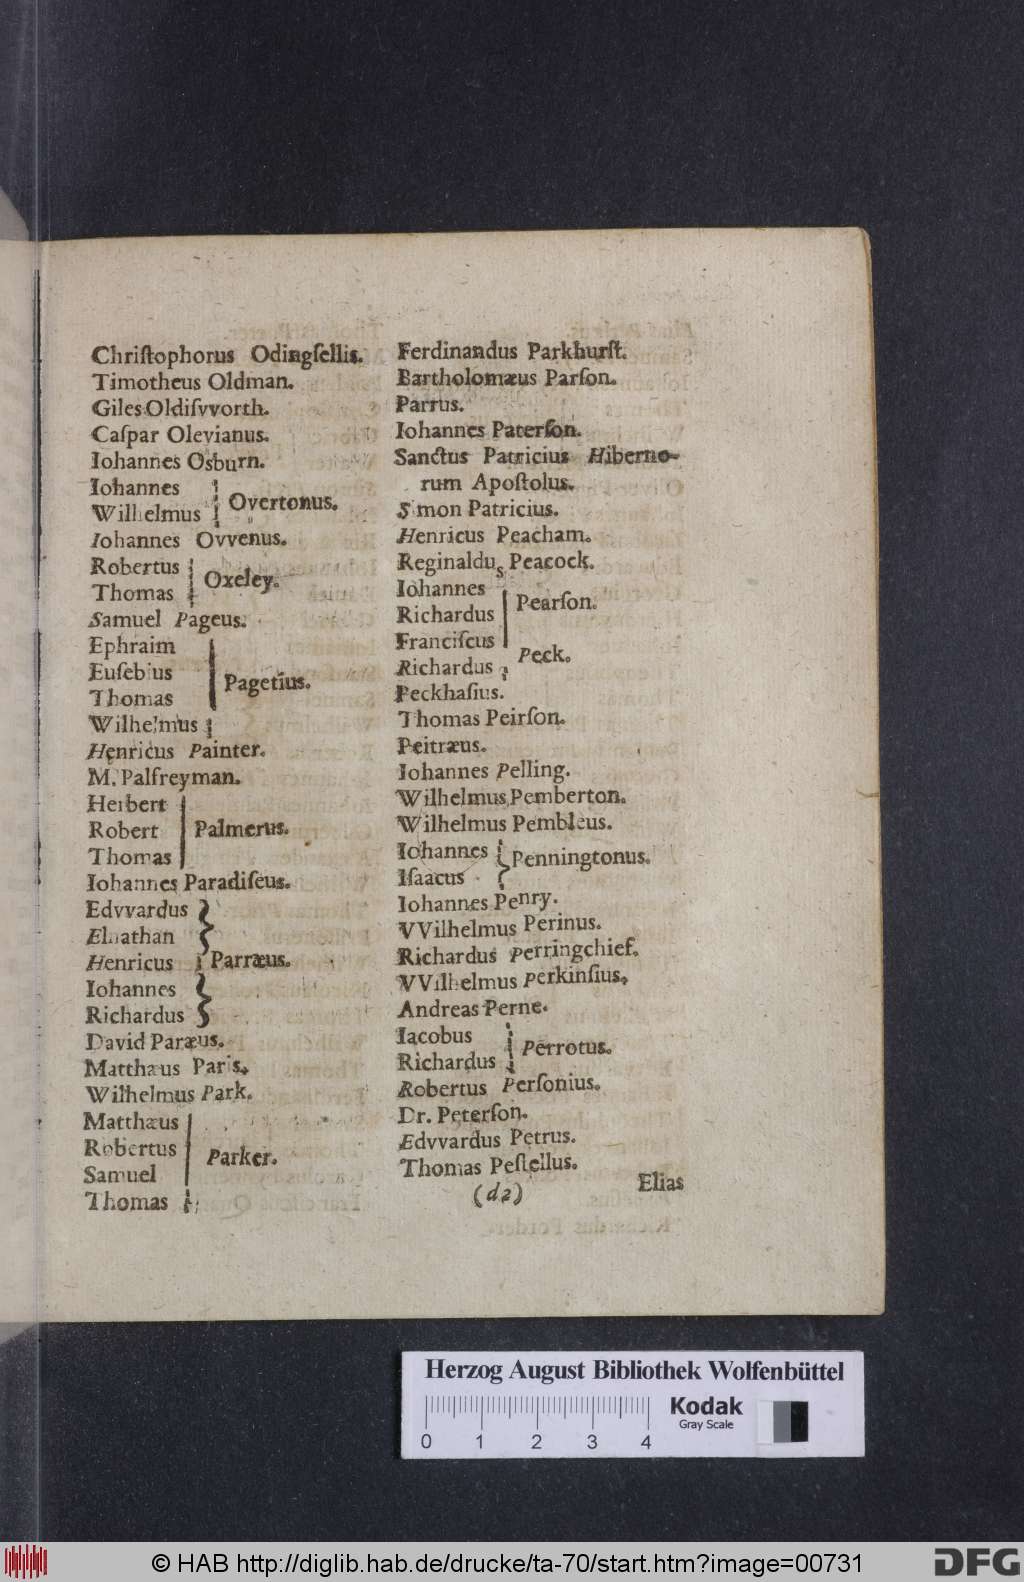 Chriſtophorus Odingſellis.
Timotheus Oldman.
Giles Oldiſvvorth.
Caſpar Olevianus.
Iohannes Osburn.
Iohannes
Wilhelmus
Overtonus.
Iohannes Ovvenus.
Robertus
Thomas
Oxeley.
Samuel Pageus.
Ephraim
Euſebius
Thomas
Wilhelmus
Pagetius.
Henricus Painter.
M. Palfreyman.
Herbert
Robert
Thomas
Palmerus.
Iohannes Paradiſeus.
Edvvardus
Elnathan
Henricus
Iohannes
Richardus
Parræus.
David Paræus.
Matthæus Paris.
Wilhelmus Park.
Matthæus
Robertus
Samuel
Thomas
Parker.
Ferdinandus Parkhurſt.
Bartholomæus Parſon.
Parrus.
Iohannes Paterſon.
Sanctus Patricius Hiberno-
rum Apoſtolus.
Simon Patricius.
Henricus Peacham.
Reginaldus Peacock.
Iohannes
Richardus
Franciſcus
Richardus
Pearſon.
Peck.
Peckhaſius.
Thomas Peirſon.
Peitræus.
Iohannes Pelling.
Wilhelmus Pemberton.
Wilhelmus Pembleus.
Iohannes
Iſaacus
Penningtonus.
Iohannes Penry.
VVilhelmus Perinus.
Richardus Perringchief.
VVilhelmus Perkinſius.
Andreas Perne.
Iacobus
Richardus
Perrotus.
Robertus Perſonius.
Dr. Peterſon.
Edvvardus Petrus.
Thomas Peſtellus.
(d2)
Elias
Herzog August Bibliothek Wolfenbüttel
Kodak
Gray Scale
0 1 2 3 4
© HAB http://diglib.hab.de/drucke/ta-70/start.htm?image=00731
DFG